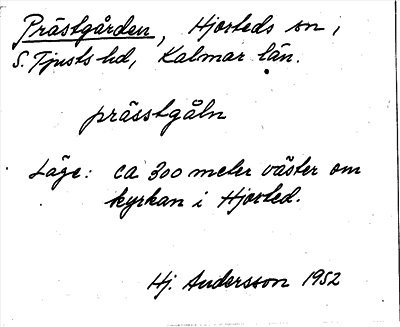 Prästgården, Hjorteds sn,
S. Tjusts hd, Kalmar län.
prässtgåln
Läge: ca 300 meter väster om
kyrkan i Hjorted.
Hj. Andersson 1952